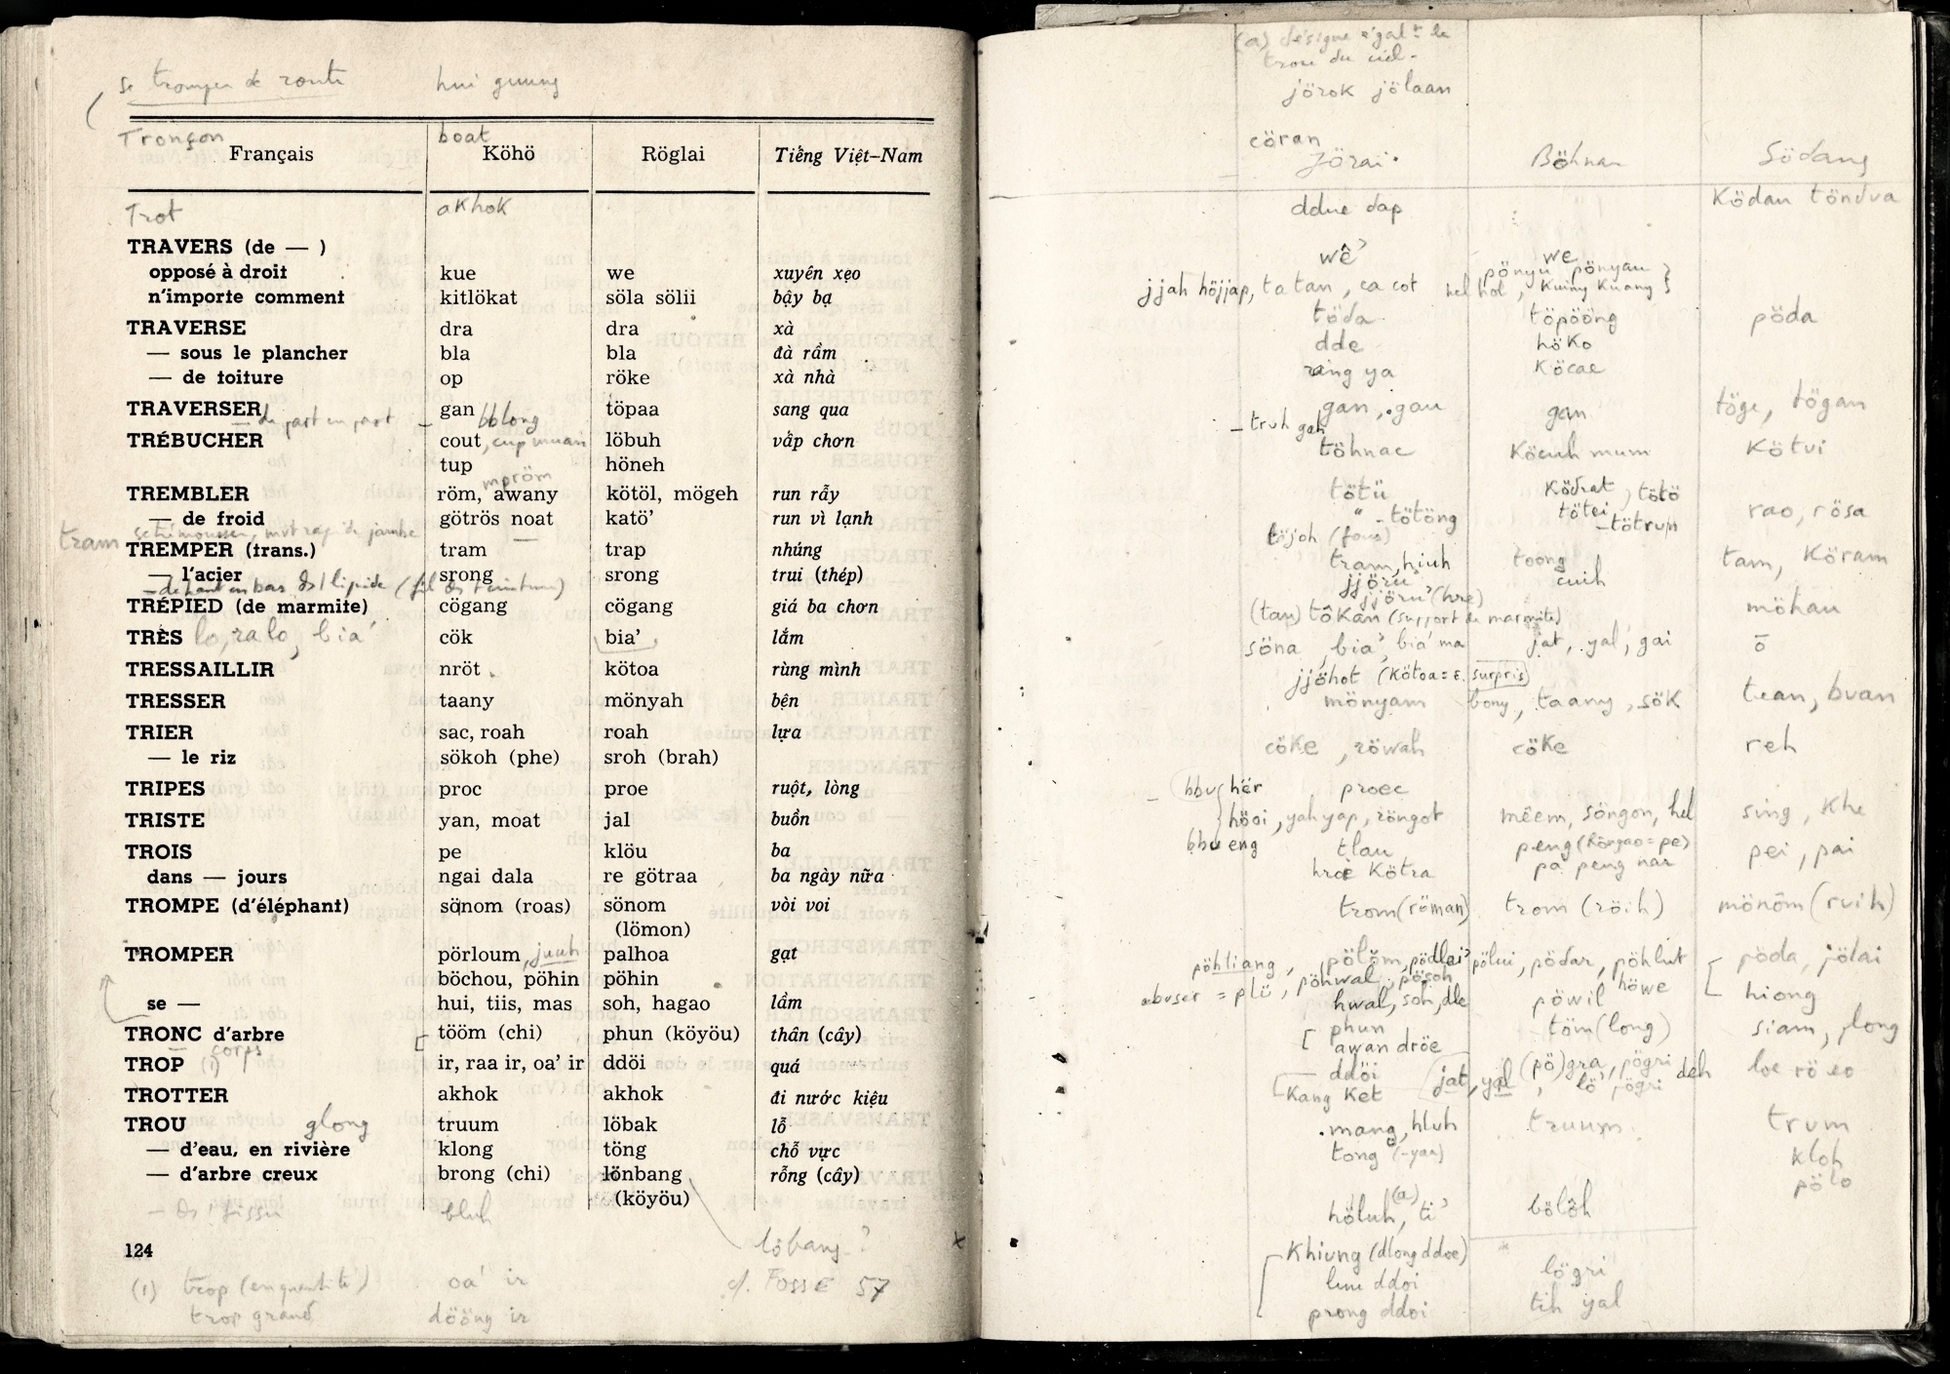 se tromper de route hui guung
Tronçon boat
Français Köhö Röglai Tiếng Việt-Nam
Trot akhok
TRAVERS (de — )
opposé à droit kue we xuyên xẹo
n'importe comment kitlökat söla sölii bậy bạ
TRAVERSE dra dra xà
— sous le plancher bla bla đà rầm
— de toiture op röke xà nhà
TRAVERSER gan bblong töpaa sang qua
— de part en part
TRÉBUCHER cout, löbuh vấp chơn
tup höneh
mpröm
TREMBLER röm, awany kötöl, mögeh run rẫy
— de froid götrös noat katö' run vì lạnh
tram
TREMPER (trans.) tram trap nhúng
— l'acier srong srong trui (thép)
TRÉPIED (de marmite) cögang cögang giá ba chơn
TRÈS lo, ralo, bia' cök bia' lắm
TRESSAILLIR nröt kötoa rùng mình
TRESSER taany mönyah bện
TRIER sac, roah roah lựa
— le riz sökoh (phe) sroh (brah)
TRIPES proc proe ruột, lòng
TRISTE yan, moat jal buồn
TROIS pe klöu ba
dans — jours ngai dala re götraa ba ngày nữa
TROMPE (d'éléphant) sönom (roas) sönom vòi voi
(lömon)
TROMPER pörloum, juuh palhoa gạt
böchou, pöhin pöhin
se — hui, tiis, mas soh, hagao lầm
TRONC d'arbre tööm (chi) phun (köyöu) thân (cây)
— corps
TROP (1) ir, raa ir, oa' ir ddöi quá
TROTTER akhok akhok đi nước kiệu
TROU glong truum löbak lỗ
— d'eau, en rivière klong töng chỗ vực
— d'arbre creux brong (chi) lönbang rỗng (cây)
(köyöu)
bluh
löbang ?
124
(1) trop (en quantité) oa' ir cf. FOSSE 57
trop grand döông ir
(a) désigne égalt le
trou du ciel.
jörok jölaan
cöran
Jörai Böhnar Södang
ddue dap Ködan töndva
wê' we
pönyu pönyau
jjah höjjap, tatan, ca cot hel hol, Kuiny Kuany
töda töpöông pöda
dde höKo
rang ya Köcae
gan, gau gan töge, tögan
— truh gah
töhnac Köcuh mum Kötvi
tötü Ködrat, tötö
" - tötöng tötei - tötrun rao, rösa
töjoh (fous)
tram, hiuh toong tam, Köram
jjöru cuih
jjöru' (hre)
(tau) tôKan (support de marmite) möhau
söna, bia', bia' ma jat, yal, gai ō
jjöhot (Kötoa = ê. surpris)
mönyam bony, taany, söK tean, bvan
cöKe, röwah cöKe reh
bbu hër proec
höoi, yah yap, röngot mêem, söngon, hel sing, Khe
bbu eng
tlau peng (Röngao = pe) pei, pai
hroê Kötra pa peng nar
trom (röman) trom (röih) mönöm (rvih)
pöhliang, pölöm, pödlai' pölui, pödar, pöhlut pöda, jölai
abuser = plü, pöhwal, pösoh höwe
hwal, soh, dle pöwil hiong
phun töm (long) siam, long
awan dröe
ddöi jat, yal, (pö)gra, pögri dëh loe rö eo
Kang Ket lö' pögri
mang, hluh truum trum
tong (-yaa) kloh
pölo
höluh, (a) ti' bölöh
Khiung (dlong ddoe)
luu ddoi lögri
prong ddoi tih yal